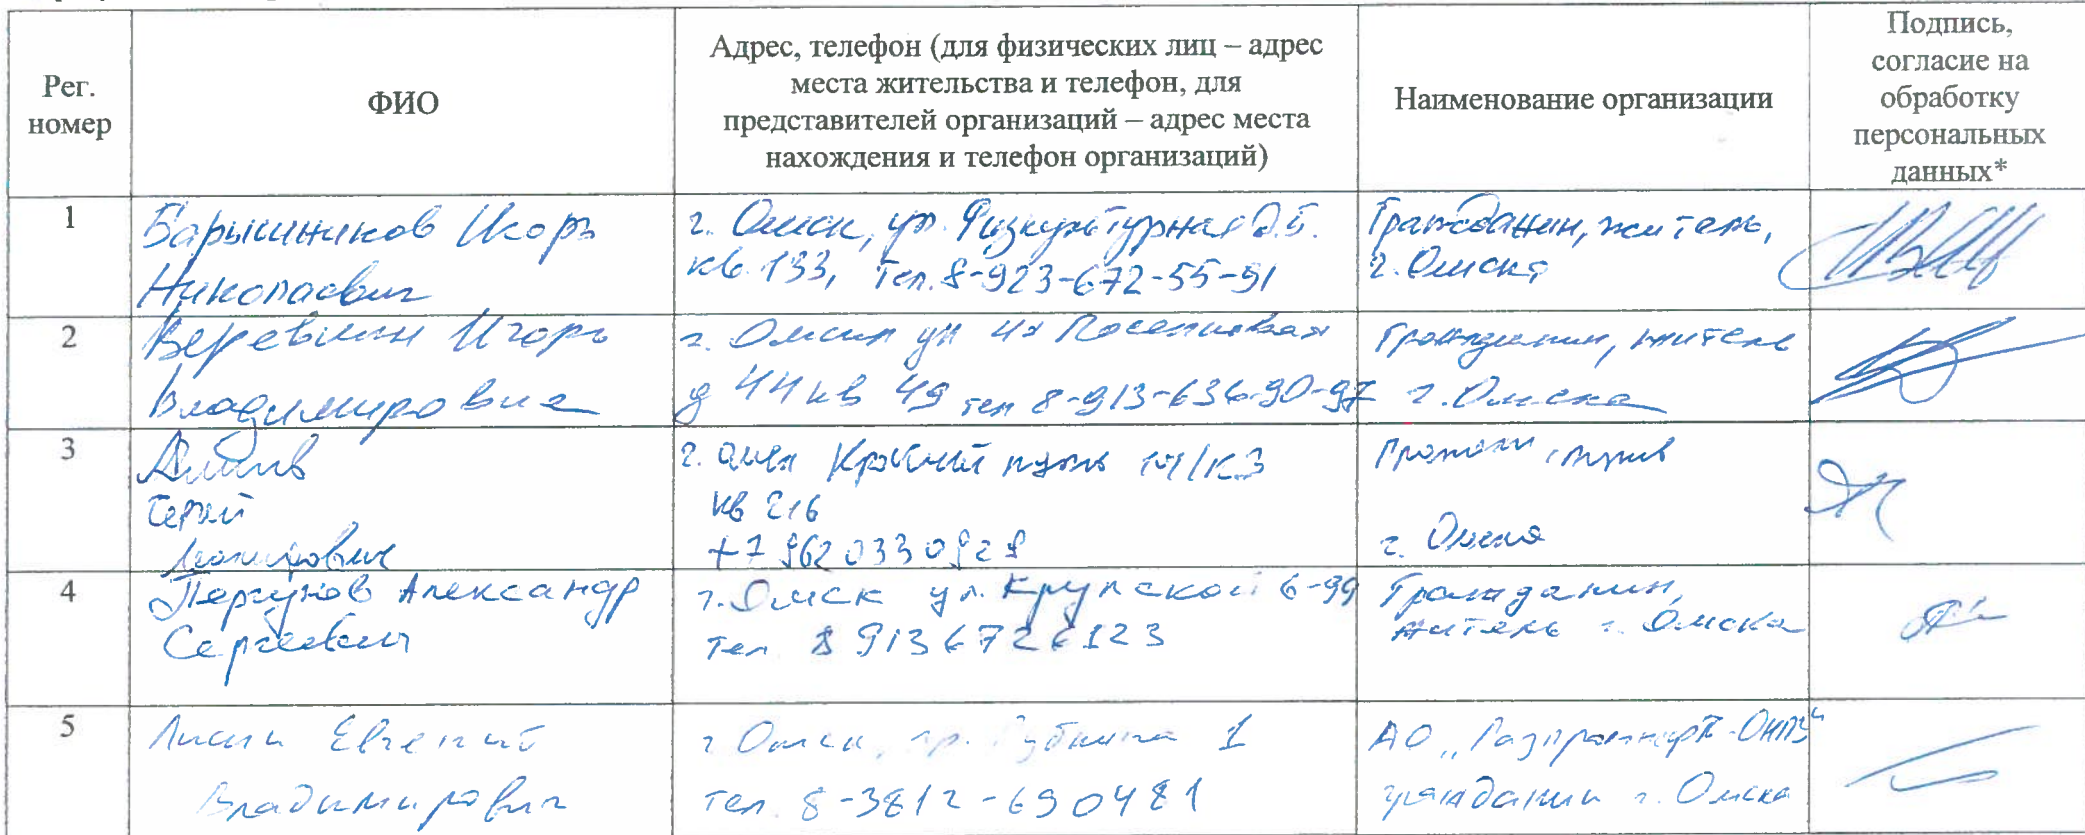 Рег. номер
ФИО
Адрес, телефон (для физических лиц – адрес
места жительства и телефон, для
представителей организаций – адрес места
нахождения и телефон организаций)
Наименование организации
Подпись,
согласие на
обработку
персональных
данных*
1
Барышников Игорь
Николаевич
г. Омск, ул. Физкультурная
кв. 133, тел. 8-923-672-55-91
Гражданин, житель,
г. Омска
2
Веревкин Игорь
Владимирович
г. Омск ул 4я Поселковая
д 44 кв 49 тел 8-913-636-90-97
Гражданин, житель
г. Омска
3
г. Омск Красный путь
кв 216
г. Омска
4
Александр
Сергеевич
г. Омск ул. Крупской 6-99
тел 8 913 672 6123
Гражданин,
житель г. Омска
5
Евгений
Владимирович
г Омск, пр. Губкина 1
тел. 8-3812-690481
АО „Газпромнефть-ОНПЗ“
гражданин г. Омска